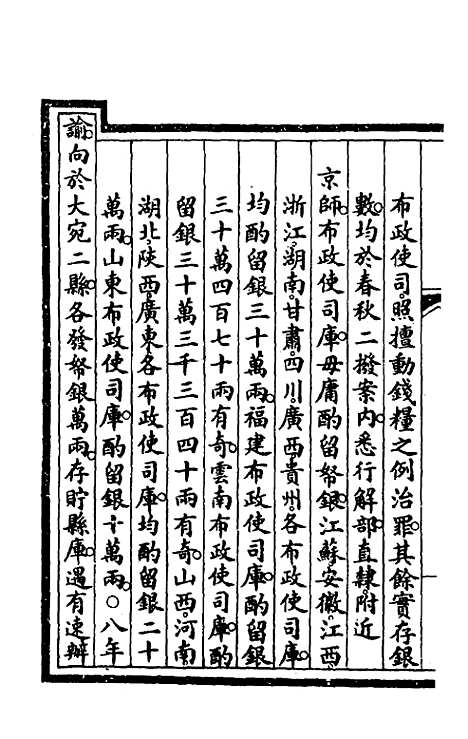 布政使司。照擅動錢糧之例治罪。其餘實存銀
數。均於春秋二撥案內。悉行解部。直隸附近
京師。布政使司庫。毋庸酌留帑銀。江蘇。安徽。江西。
浙江。湖南。甘肅。四川。廣西。貴州。各布政使司庫。
均酌留銀三十萬兩。福建布政使司庫。酌留銀
三十萬四百七十兩有奇。雲南布政使司庫。酌
留銀三十萬三千三百四十兩有奇。山西。河南。
湖北。陝西。廣東各布政使司庫。均酌留銀二十
萬兩。山東布政使司庫。酌留銀十萬兩。○八年
諭。向於大宛二縣。各發帑銀萬兩。存貯縣庫。遇有速辦